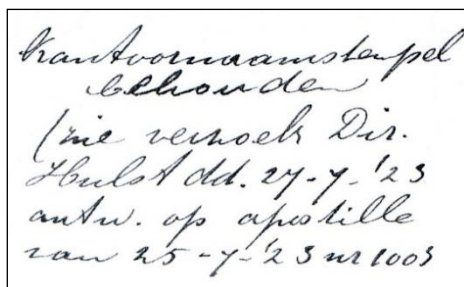 Kantoornaamstempel
behouden
(zie verzoek Dir.
Hulst dd. 27-7-'23
antw. op apostille
van 25-7-'23 nr 1003